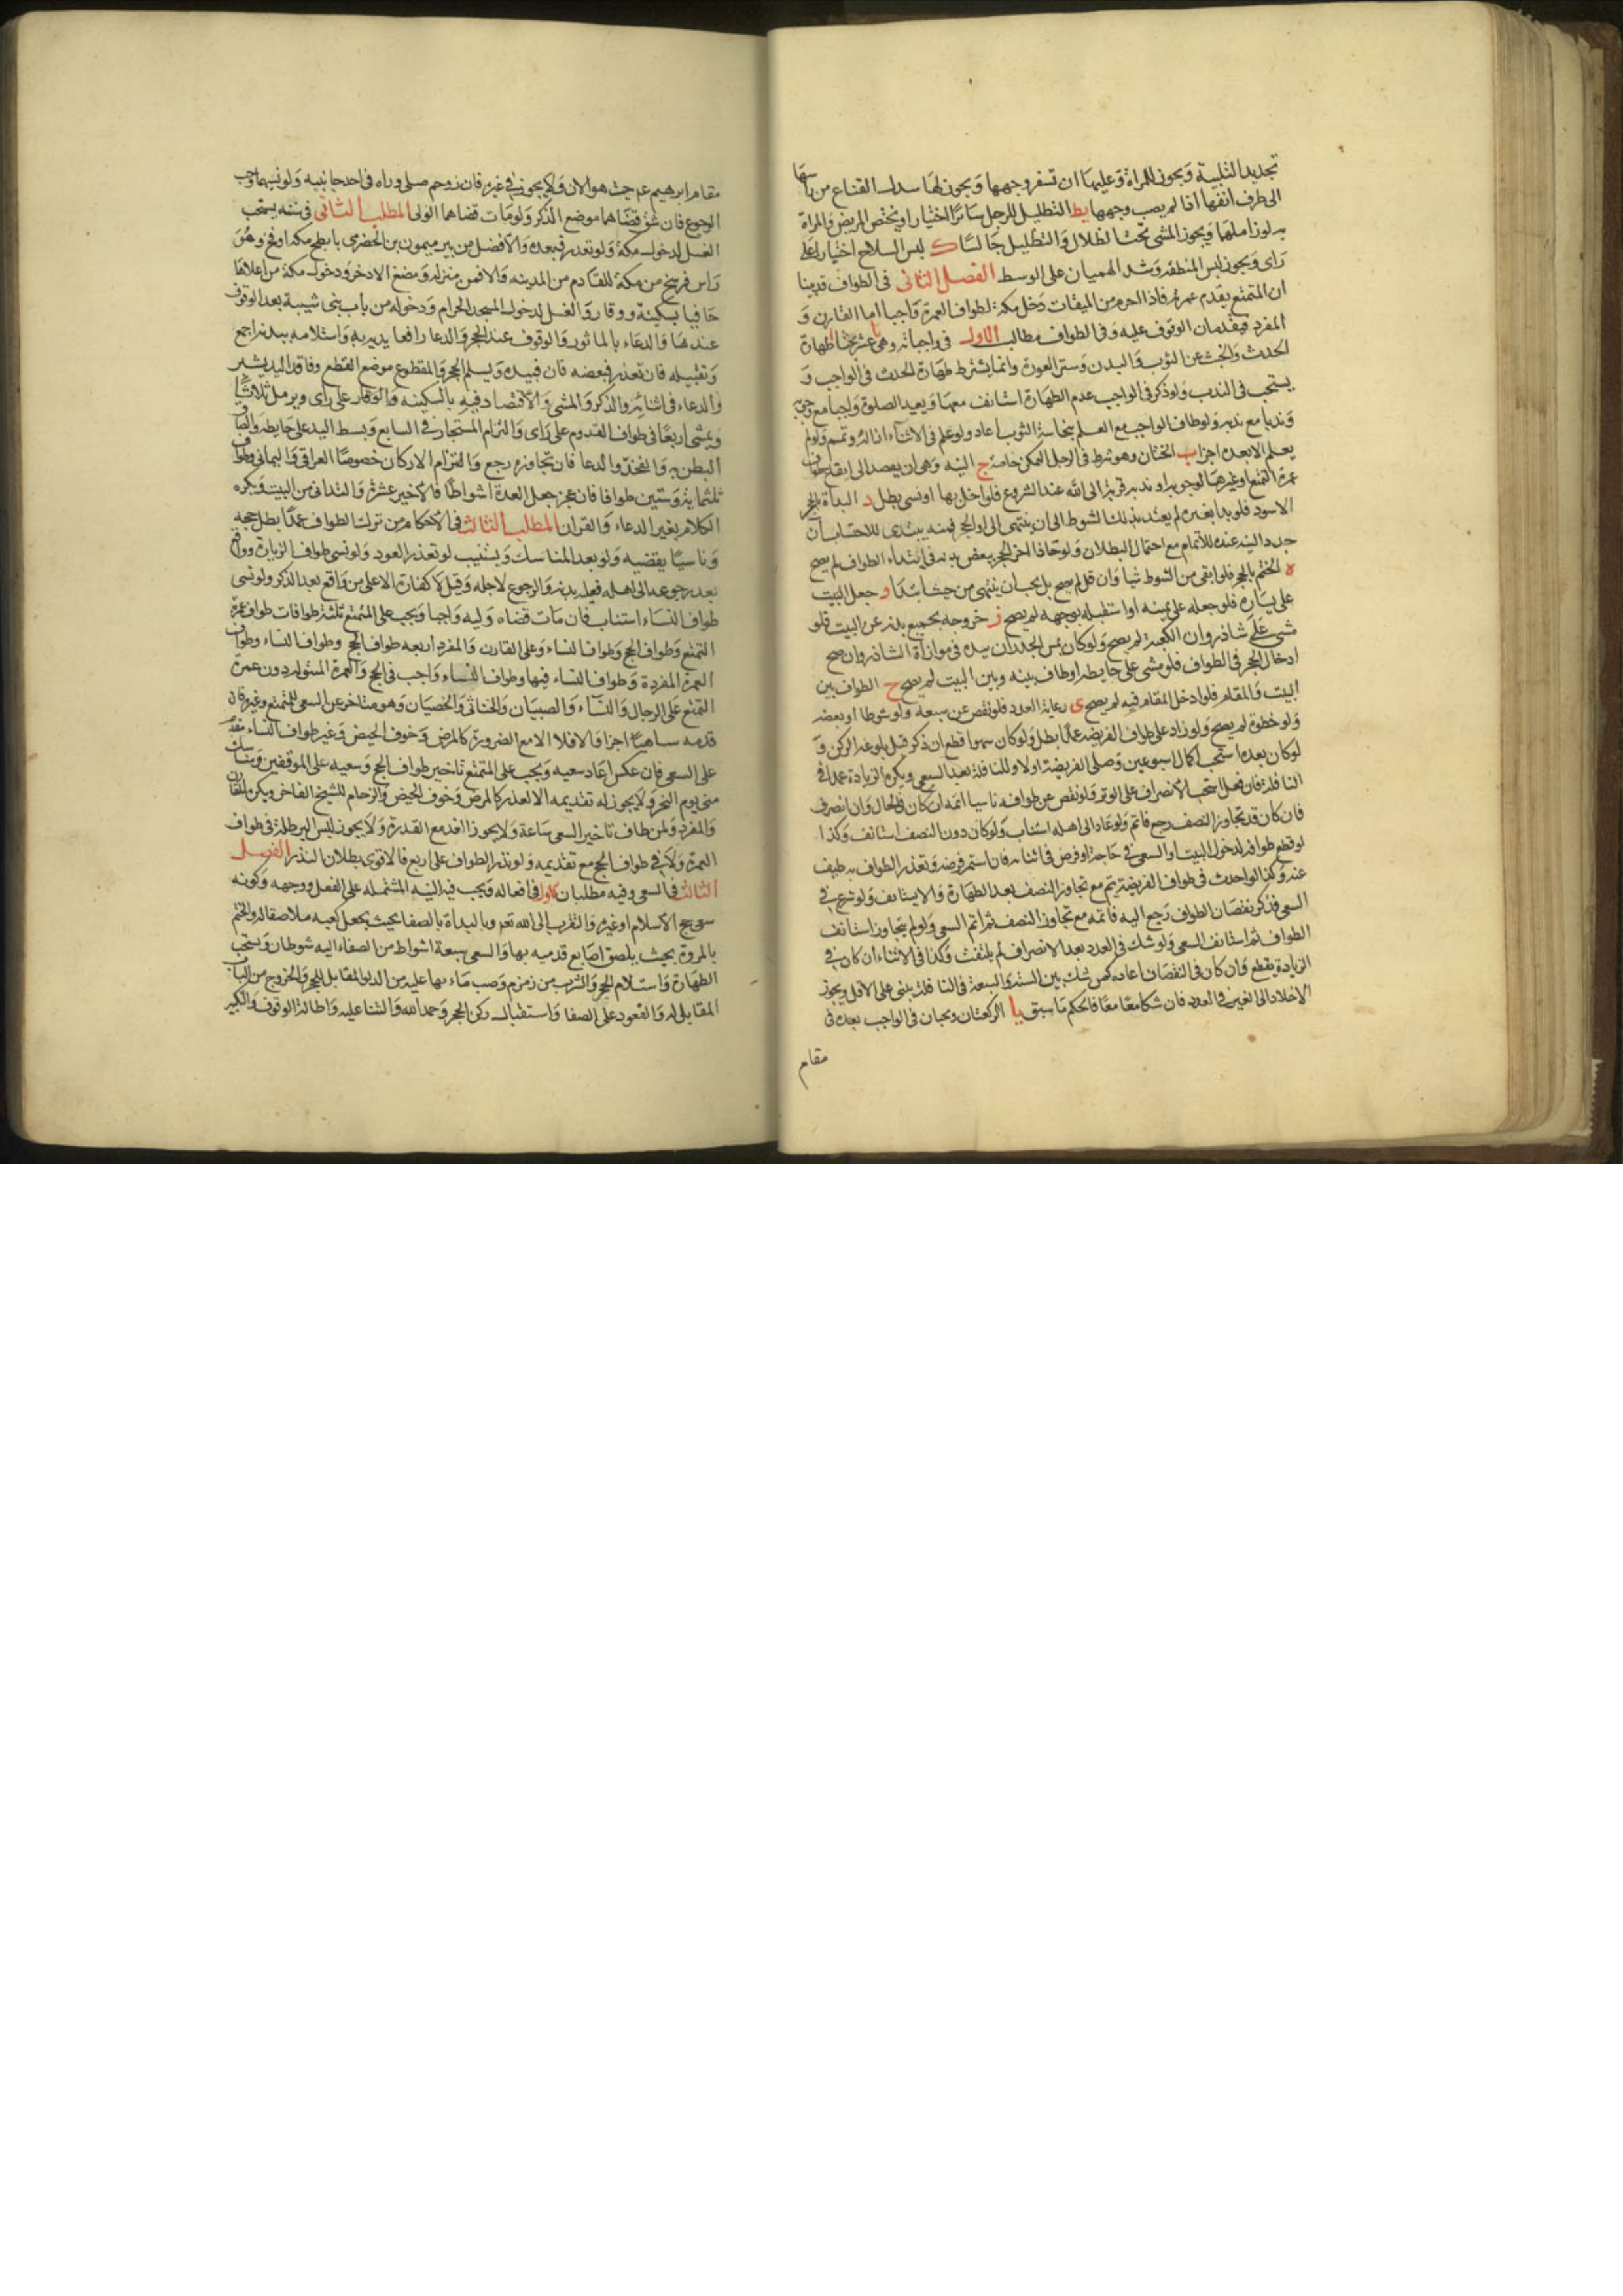 تجديد التلبية ويجوز للمراة وعليهما ان تسفر وجهها ويجوز لها سدل القناع من راسها
الى طرف انفها اذا لم يصب وجهها يط التظليل للرجل سائرا اختيارا ويختص المريض والمراة
به لو زاملهما ويجوز المشى تحت الظلال والتظليل جالسا ك لبس السلاح اختيارا على
راى ويجوز لبس المنطقه وشد الهميان على الوسط الفصل الثانى فى الطواف قد بينا
ان المتمتع يقدم عمرته فاذا احرم من الميقات دخل مكة لطواف العمرة واجبا اما القارن و
المفرد فيقدمان الوقوف عليه وفى الطواف مطالب الاول فى واجباته وهى عشر بحثا ا طهارة
الحدث والخبث عن الثوب والبدن وستر العورة وانما يشترط طهارة الحدث فى الواجب و
يستحب فى الندب ولو ذكر فى الواجب عدم الطهارة استانف معها ويعيد الصلوة واجبا مع وجوبه
وندبا مع ندبه ولو طاف الواجب مع العلم بنجاسة الثوب اعاد ولو علم فى الاثناء ازاله وتمم ولو لم
يعلم الا بعده اجزا ب الختان وهو شرط فى الرجل المتمكن خاصة ج النية وهى ان يقصد الى ايقاع طواف
عمرة التمتع او غيرها لوجوبه او ندبه قربة الى الله عند الشروع فلو اخل بها او نسى بطل د البداة بالحجر
الاسود فلو بدا بغيره لم يعتد بذلك الشوط الى ان ينتهى الى اول الحجر فمنه يبتدى للاحتساب ان
جدد النية عنده للاتمام مع احتمال البطلان ولو حاذا اخر الحجر ببعض بدنه فى ابتداء الطواف لم يصح
ه الختم بالحجر فلو ابقى من الشوط شيا وان قل لم يصح بل يجب ان ينتهى من حيث ابتدا و جعل البيت
على يساره فلو جعله على يمينه او استقبله بوجهه لم يصح ز خروجه بجميع بدنه عن البيت فلو
مشى على شاذروان الكعبة لم يصح ولو كان يمس الجدار بيده فى موازاة الشاذروان صح
ادخال الحجر فى الطواف فلو مشى على حايطه او طاف بينه وبين البيت لم يصح ح الطواف بين
البيت والمقام فلو ادخل المقام فيه لم يصح ى رعاية العدد فلو نقص عن سبعة ولو شوطا او بعضه
ولو خطوة لم يصح ولو زاد على طواف الفريضه عمدا بطل ولو كان سهوا قطع ان ذكر قبل بلوغه الركن و
لو كان بعده استحب اكمال اسبوعين وصلى الفريضة اولا وللنافلة بعد السعى ويكره الزيادة عمدا فى
النافلة فان فعل استحب الانصراف على الوتر ولو نقص عن طوافه ناسيا اتمه ان كان فى الحال وان انصرف
فان كان قد تجاوز النصف رجع فاتم ولو عاد الى اهله استناب ولو كان دون النصف استانف وكذا
لو قطع طوافه لدخول البيت او السعى فى حاجة او مرض فى اثنائه فان استمر مرضه وتعذر الطواف به طيف
عنه وكذا لو احدث فى طواف الفريضة يتم مع تجاوز النصف بعد الطهارة والا يستانف ولو شرع فى
السعى فذكر نقصان الطواف رجع اليه فاتمه مع تجاوز النصف ثم اتم السعى ولو لم يتجاوز استانف
الطواف ثم استانف السعى ولو شك فى العدد بعد الانصراف لم يلتفت وكذا فى الاثناء ان كان فى
الزيادة يقطع وان كان فى النقصان اعاد كمن شك بين الستة والسبعة فى النافلة يبنى على الاقل ويجوز
الاخلاد الى الغير فى العدد فان شكا معا فالحكم ما سبق يا الركعتان ويجبان فى الواجب بعده فى
مقام
مقام ابرهيم عم حيث هو الان ولا يجوز فى غيره فان زوحم صلى وراه او فى احد جانبيه ولو نسيهما وجب
الرجوع فان شق قضاهما موضع الذكر ولو مات قضاهما الولى المطلب الثانى فى سننه يستحب
الغسل لدخول مكة ولو تعذر فبعده والافضل من بير ميمون بن الحضرمى بابطح مكه او فخ وهو
راس فرسخ من مكة للقادم من المدينه والا فمن منزله ومضغ الاذخر ودخول مكة من اعلاها
حافيا بسكينة ووقار والغسل لدخول المسجد الحرام ودخوله من باب بنى شيبة بعد الوقوف
عندها والدعاء بالماثور والوقوف عند الحجر والدعا رافعا يديه به واستلامه ببدنه اجمع
وتقبيله فان تعذر فببعضه فان فبيده ويسلم الحجر والمقطوع موضع القطع وفاقد اليد يشير
والدعاء فى اثنائه والذكر والمشى والاقتصاد فيه بالسكينه والوقار على راى ويرمل ثلاثا
ويمشى اربعا فى طواف القدوم على راى والتزام المستجار فى السابع وبسط اليد على حايطه والصاق
البطن به والخد والدعا فان تجاوزه رجع والتزام الاركان خصوصا العراقى واليمانى وطواف
ثلثمائة وستين طوافا فان عجز جعل العدة اشواطا فالاخير عشرة والتدانى من البيت ويكره
الكلام بغير الدعاء والقران المطلب الثالث فى الاحكام من ترك الطواف عمدا بطل حجه
وناسيا يقضيه ولو بعد المناسك ويستنيب لو تعذر العود ولو نسى طواف الزيارة وواقع
بعد رجوعه الى اهله فعليه بدنة والرجوع لاجله وقيل لا كفارة الا على من واقع بعد الذكر ولو نسى
طواف النساء استناب فان مات قضاه وليه واجبا ويجب على المتمتع ثلثة طوافات طواف عمرة
التمتع وطواف الحج وطواف النساء وعلى القارن والمفرد اربعه طواف الحج وطواف النساء وطواف
العمرة المفردة وطواف النساء فيها وطواف النساء واجب فى الحج والعمرة المبتولة دون عمرة
التمتع على الرجال والنساء والصبيان والخناثى والخصيان وهو متاخر عن السعى للمتمتع وغيره فان
قدمه ساهيا اجزا والا فلا الا مع الضرورة كالمرض وخوف الحيض وغير طواف النساء مقدم
على السعى فان عكس اعاد سعيه ويجب على المتمتع تاخير طواف الحج وسعيه على الموقفين ومناسك
منى يوم النحر ولا يجوز له تقديمه الا لعذر كالمرض وخوف الحيض والزحام للشيخ العاجز ويكره للقارن
والمفرد ولمن طاف تاخير السعى ساعة ولا يجوز الغد مع القدرة ولا يجوز لبس البرطلة فى طواف
العمرة ولا فى طواف الحج مع تقديمه ولو نذر الطواف على اربع فالاقوى بطلان النذر الفصل
الثالث فى السعى وفيه مطلبان الاول فى افعاله ويجب فيه النية المشتملة على الفعل ووجهه وكونه
سعى حج الاسلام او غيره والتقرب الى الله تعم وبالبداة بالصفا بحيث يجعل كعبه ملاصقا له والختم
بالمروة بحيث يلصق اصابع قدميه بها والسعى سبعة اشواط من الصفا اليه شوطان ويستحب
الطهارة واستلام الحجر والشرب من زمزم وصب ماءها عليه من الدلو المقابل للحجر والخروج من الباب
المقابل له والصعود على الصفا واستقبال ركن الحجر وحمد الله والثنا عليه واطالة الوقوف والتكبير